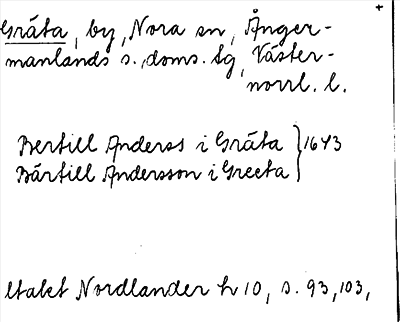 Gräta, by, Nora sn, Ånger-
manlands s. doms. tg, Väster-
norrl. l.
Bertill Anderss i Gräta } 1643
Bärtill Andersson i Greeta
Utakt Nordlander h 10, s. 93, 103,